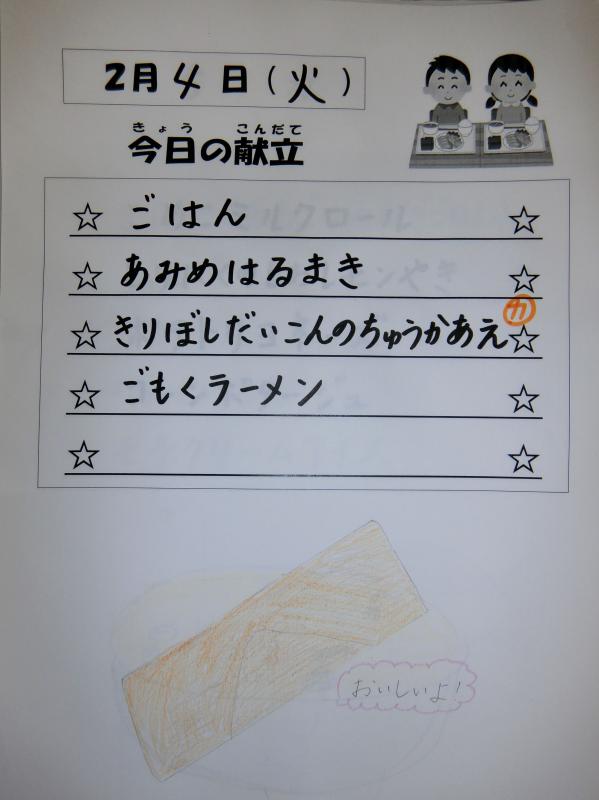 2月4日(火)
きょう こんだて
今日の献立
☆ ごはん ☆
☆ あみめはるまき ☆
カ
☆ きりぼしだいこんのちゅうかあえ ☆
☆ ごもくラーメン ☆
☆ ☆
おいしいよ!